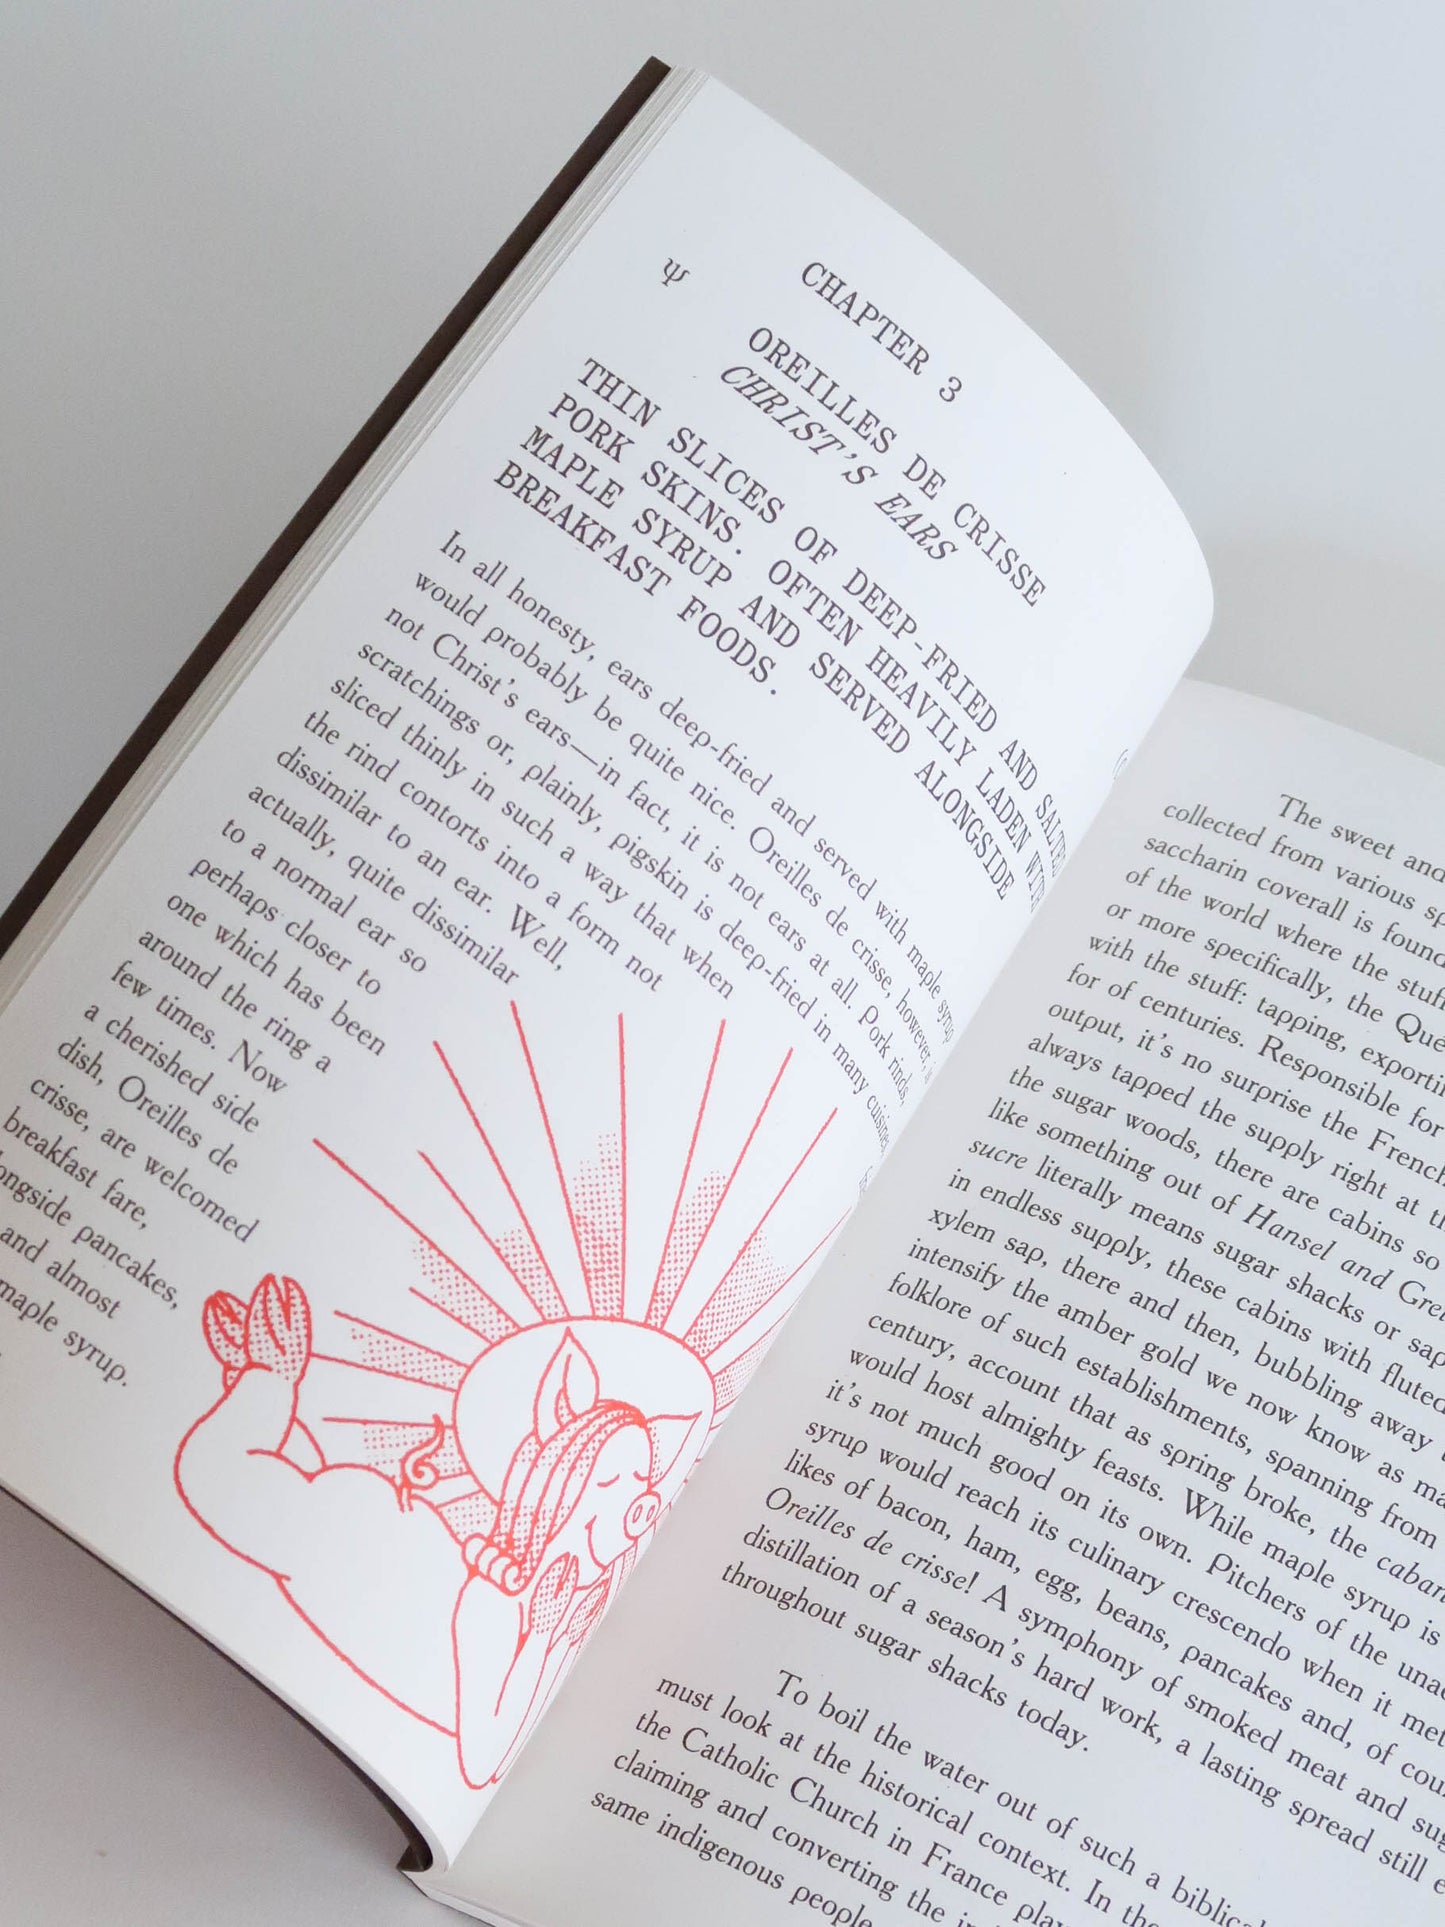 Ψ
CHAPTER 3
OREILLES DE CRISSE
CHRIST'S EARS
THIN SLICES OF DEEP-FRIED AND SALTED
PORK SKINS. OFTEN HEAVILY LADEN WITH
MAPLE SYRUP AND SERVED ALONGSIDE
BREAKFAST FOODS.
In all honesty, ears deep-fried and served with maple syrup
would probably be quite nice. Oreilles de crisse, however, is
not Christ's ears—in fact, it is not ears at all. Pork rinds,
scratchings or, plainly, pigskin is deep-fried in many cuisines
sliced thinly in such a way that when
the rind contorts into a form not
dissimilar to an ear. Well,
actually, quite dissimilar
to a normal ear so
perhaps closer to
one which has been
around the ring a
few times. Now
a cherished side
dish, Oreilles de
crisse, are welcomed
breakfast fare,
pancakes,
and almost
maple syrup.
The sweet and
collected from various
saccharin coverall is found
of the world where the stuff
or more specifically, the
with the stuff: tapping,
for of centuries. Responsible for
output, it's no surprise the French
always tapped the supply right at
the sugar woods, there are cabins so
like something out of Hansel and
sucre literally means sugar shacks or
in endless supply, these cabins with fluted
xylem sap, there and then, bubbling away
intensify the amber gold we now know as
folklore of such establishments, spanning from
century, account that as spring broke, the
would host almighty feasts. While maple syrup is
it's not much good on its own. Pitchers of the
syrup would reach its culinary crescendo when it
likes of bacon, ham, egg, beans, pancakes and, of
Oreilles de crisse! A symphony of smoked meat and
distillation of a season's hard work, a lasting spread still
throughout sugar shacks today.
To boil the water out of such a
must look at the historical context. In the
the Catholic Church in France
claiming and converting the
same indigenous people